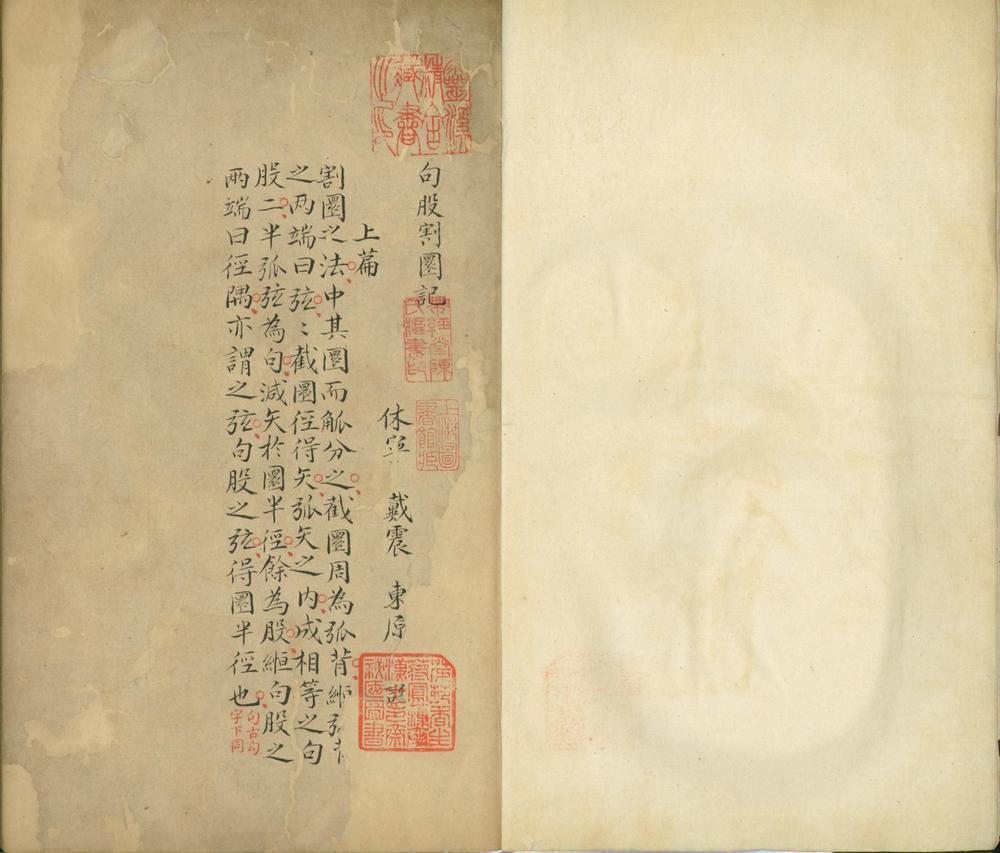 句股割圜記
休寧 戴震 東原
上篇
割圜之法中其圜而觚分之截圜周為弧背緪弧背
之两端曰弦〻截圜徑得矢弧矢之内成相等之句
股二半弧弦為句減矢於圜半徑餘為股緪句股之
兩端曰徑隅亦謂之弦句股之弦得圜半徑也
句古勾
字下同